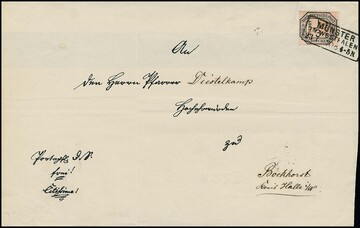 MÜNSTER
WESTFALEN
4-5N.
An
den Herrn Pfarrer Diestelkamp
Hochehrwürden
zu
Bockhorst
Kreis Halle i/W
Portopfl. D. S.
frei!
Citissime!